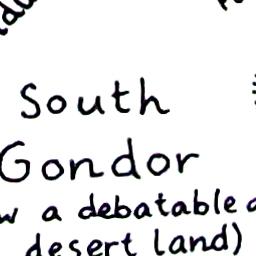 South
Gondor
a debatable
desert land)